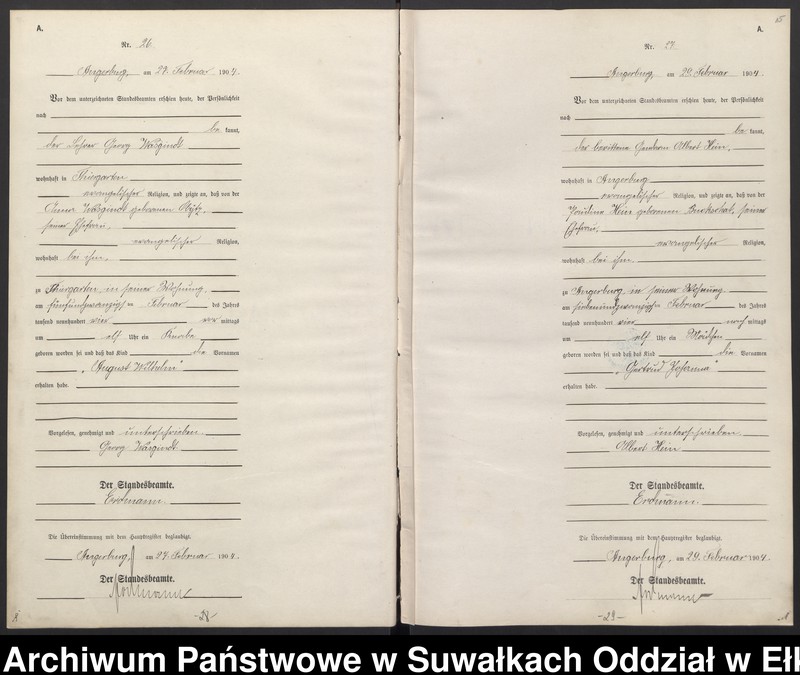 A.
Nr. 26
Angerburg, am 27. Februar 1904.
Vor dem unterzeichneten Standesbeamten erschien heute, der Persönlichkeit
nach
be kannt,
der Lehrer Georg
wohnhaft in Thiergarten
evangelischer Religion, und zeigte an, daß von der
geborenen
seiner Ehefrau,
evangelischer Religion,
wohnhaft bei ihm
zu Thiergarten, in seiner Wohnung,
am fünfundzwanzigsten Februar des Jahres
tausend neunhundert vier vor mittags
um elf Uhr ein Knabe
geboren worden sei und daß das Kind die Vornamen
"August Wilhelm"
erhalten habe.
Vorgelesen, genehmigt und unterschrieben
Georg
Der Standesbeamte.
Erdmann.
Die Übereinstimmung mit dem Hauptregister beglaubigt.
Angerburg, am 27. Februar 1904.
Der Standesbeamte.
Erdmann
-28-
15
A.
Nr. 27.
Angerburg, am 29. Februar 1904.
Vor dem unterzeichneten Standesbeamten erschien heute, der Persönlichkeit
nach
be kannt,
der berittene Gendarm Albert Hein,
wohnhaft in Angerburg
evangelischer Religion, und zeigte an, daß von der
Pauline Hein geborenen seiner
Ehefrau,
evangelischer Religion,
wohnhaft bei ihm
zu Angerburg, in seiner Wohnung
am siebenundzwanzigsten Februar des Jahres
tausend neunhundert vier nach mittags
um elf Uhr ein Mädchen
geboren worden sei und daß das Kind die Vornamen
"Gertrud Johanna"
erhalten habe.
Vorgelesen, genehmigt und unterschrieben
Albert Hein
Der Standesbeamte.
Erdmann.
Die Übereinstimmung mit dem Hauptregister beglaubigt.
Angerburg, am 29. Februar 1904.
Der Standesbeamte.
Erdmann
-29-
Archiwum Państwowe w Suwałkach Oddział w Ełk